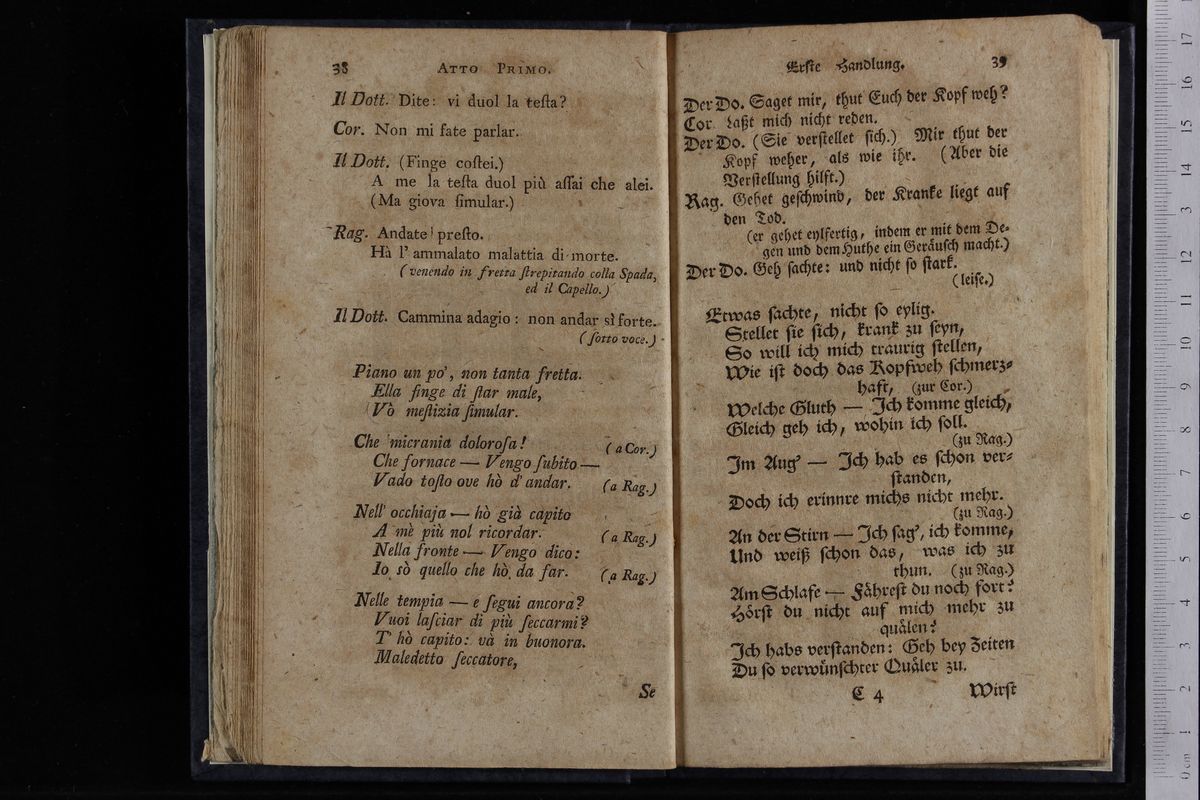 38 ATTO PRIMO.
Il Dott. Dite: vi duol la teſta?
Cor. Non mi fate parlar.
Il Dott. (Finge coſtei.)
A me la teſta duol più aſſai che alei.
(Ma giova ſimular.)
Rag. Andate preſto.
Hà l' ammalato malattia di morte.
(venendo in fretta ſtrepitando colla Spada,
ed il Capello.)
Il Dott. Cammina adagio: non andar sì forte.
(ſotto voce.)
Piano un po', non tanta fretta.
Ella finge di ſtar male,
Vò meſtizia ſimular.
Che micrania doloroſa! (a Cor.)
Che fornace — Vengo ſubito —
Vado toſto ove hò d' andar. (a Rag.)
Nell' occhiaja — hò già capito
A mè più nol ricordar. (a Rag.)
Nella fronte — Vengo dico:
Io sò quello che hò da far. (a Rag.)
Nelle tempia — e ſegui ancora?
Vuoi laſciar di più ſeccarmi?
T' hò capito: và in buonora.
Maledetto ſeccatore,
Se
Erſte Handlung. 39
Der Do. Saget mir, thut Euch der Kopf weh?
Cor. Laßt mich nicht reden.
Der Do. (Sie verſtellet ſich.) Mir thut der
Kopf weher, als wie ihr. (Aber die
Verſtellung hilft.)
Rag. Gehet geſchwind, der Kranke liegt auf
den Tod.
(er gehet eylfertig, indem er mit dem De-
gen und dem Huthe ein Geräuſch macht.)
Der Do. Geh ſachte: und nicht ſo ſtark.
(leiſe.)
Etwas ſachte, nicht ſo eylig.
Stellet ſie ſich, krank zu ſeyn,
So will ich mich traurig ſtellen,
Wie iſt doch das Kopfweh ſchmerz-
haft, (zur Cor.)
Welche Gluth — Ich komme gleich,
Gleich geh ich, wohin ich ſoll.
(zu Rag.)
Im Aug' — Ich hab es ſchon ver-
ſtanden,
Doch ich erinnre michs nicht mehr.
(zu Rag.)
An der Stirn — Ich ſag', ich komme,
Und weiß ſchon das, was ich zu
thun. (zu Rag.)
Am Schlafe — Fähreſt du noch fort?
Hörſt du nicht auf mich mehr zu
quälen?
Ich habs verſtanden: Geh bey Zeiten
Du ſo verwünſchter Quäler zu.
C 4 Wirſt
0 cm 1 2 3 4 5 6 7 8 9 10 11 12 13 14 15 16 17